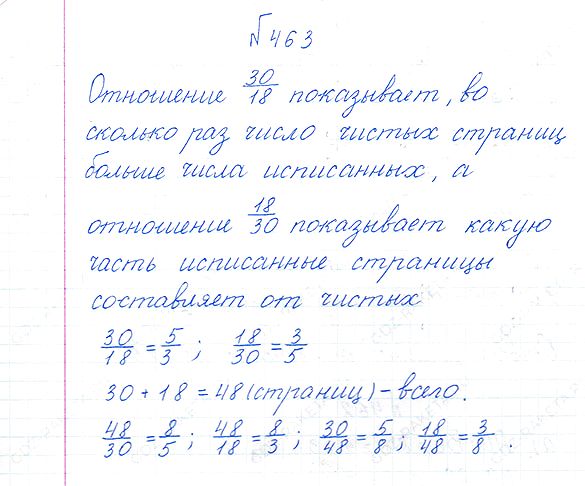 №463
Отношение 30/18 показывает, во
сколько раз число чистых страниц
больше числа исписанных, а
отношение 18/30 показывает какую
часть исписанные страницы
составляет от чистых
30/18 = 5/3 ; 18/30 = 3/5
30 + 18 = 48 (страниц) - всего.
48/30 = 8/5 ; 48/18 = 8/3 ; 30/48 = 5/8 ; 18/48 = 3/8 .